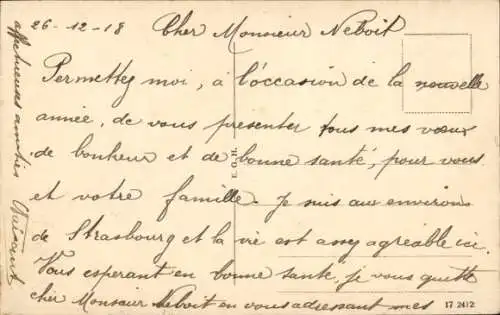 26-12-18 Cher Monsieur Neboit
Permettez moi, à l'occasion de la nouvelle
année, de vous présenter tous mes vœux
de bonheur et de bonne santé, pour vous
et votre famille. Je suis aux environs
de Strasbourg et la vie est assez agréable ici.
Vous esperant en bonne sante, je vous quitte
cher Monsieur Neboit en vous adressant mes
affectueuses amitiés
E. O. H.
17 2412